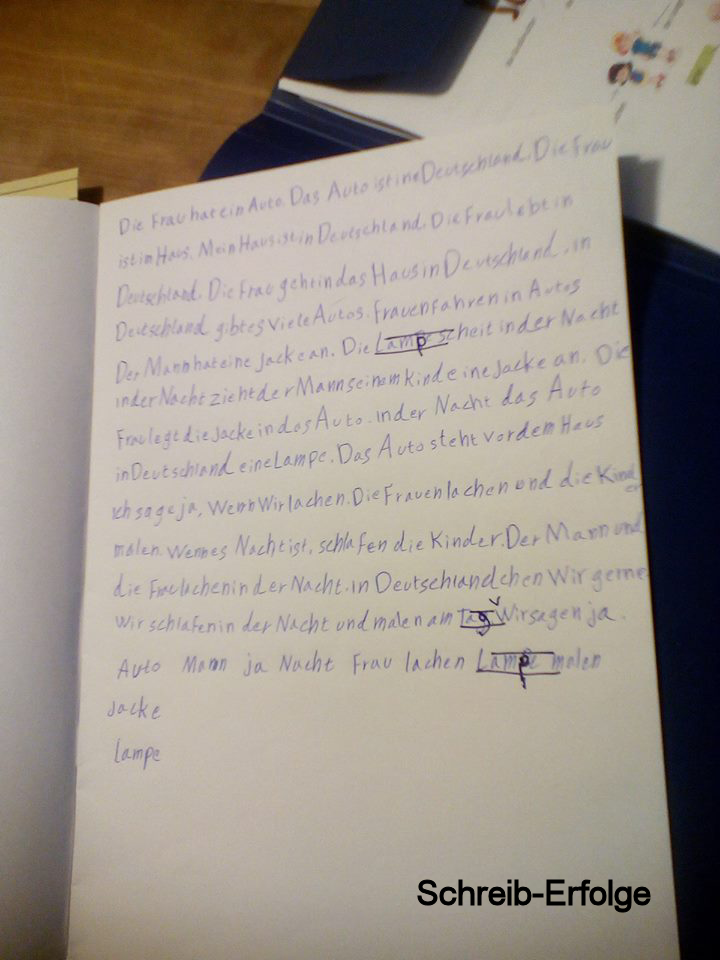 Die Frau hat ein Auto. Das Auto ist in Deutschland. Die Frau
ist im Haus. Mein Haus ist in Deutschland. Die Frau lebt in
Deutschland. Die Frau geht in das Haus in Deutschland. in
Deutschland gibt es viele Autos. Frauen fahren in Autos
Der Mann hat eine Jacke an. Die Lampe scheit in der Nacht
in der Nacht zieht der Mann seinem Kinde eine Jacke an. Die
Frau legt die Jacke in das Auto. in der Nacht das Auto
in Deutschland eine Lampe. Das Auto steht vor dem Haus
ich sage ja, Wenn Wir lachen. Die Frauen lachen und die Kinder
malen. Wenn es Nacht ist, schlafen die Kinder. Der Mann und
die Frau lachen in der Nacht. in Deutschland chen Wir gerne
Wir schlafen in der Nacht und malen am Tag Wir sagen ja.
Auto Mann ja Nacht Frau lachen Lampe malen
Jacke
lampe
Schreib-Erfolge